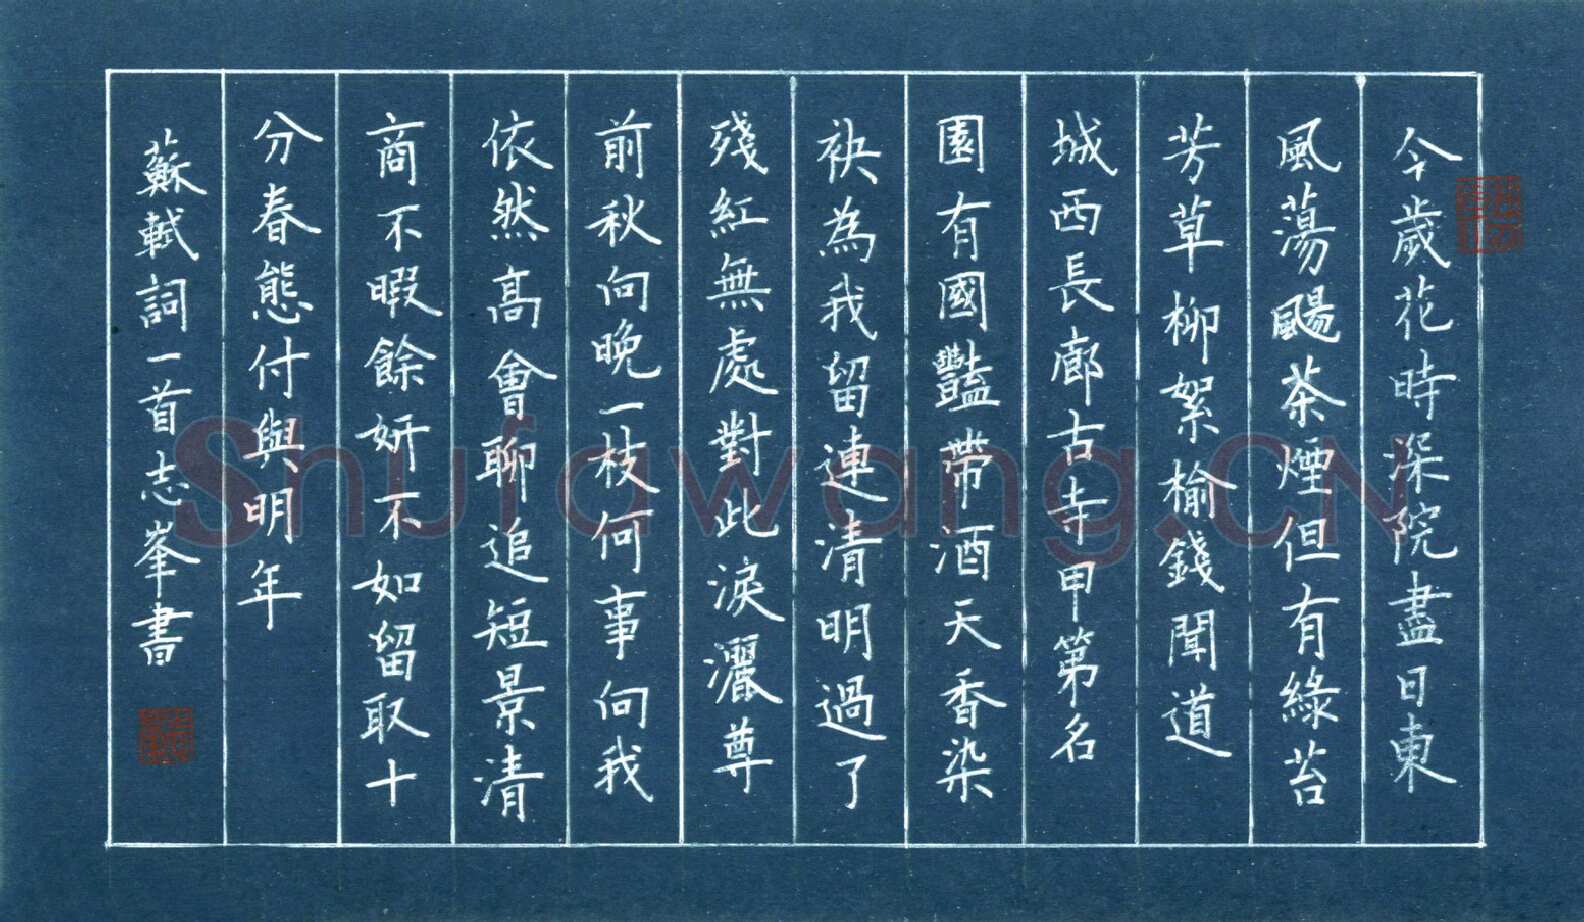 今歲花時深院盡日東
風蕩颺茶煙但有綠苔
芳草柳絮榆錢聞道
城西長廊古寺甲第名
園有國豔帶酒天香染
袂為我留連清明過了
殘紅無處對此淚灑尊
前秋向晚一枝何事向我
依然高會聊追短景清
商不暇餘妍不如留取十
分春態付與明年
蘇軾詞一首志峯書
Shufawang.CN